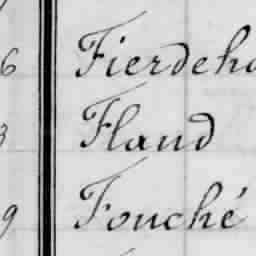 6 Fierdeho
3 Flaud
9 Fouché